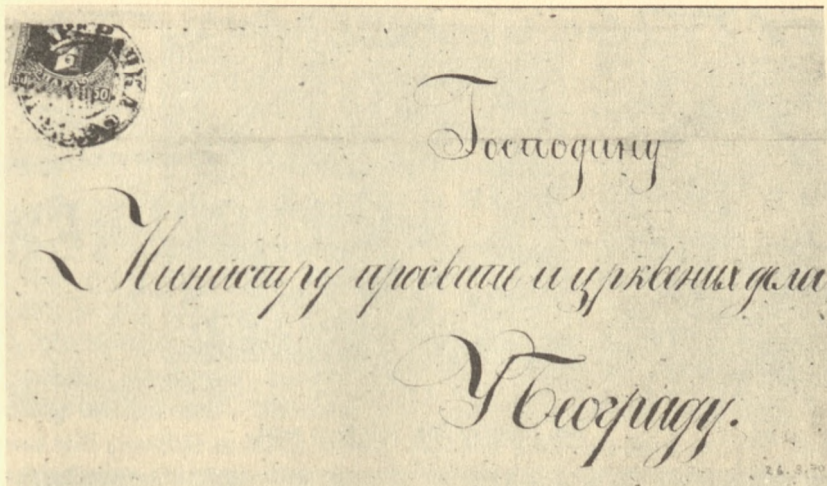 Господину
Министру просвете и црквених дела
У Београду.
26.8.90